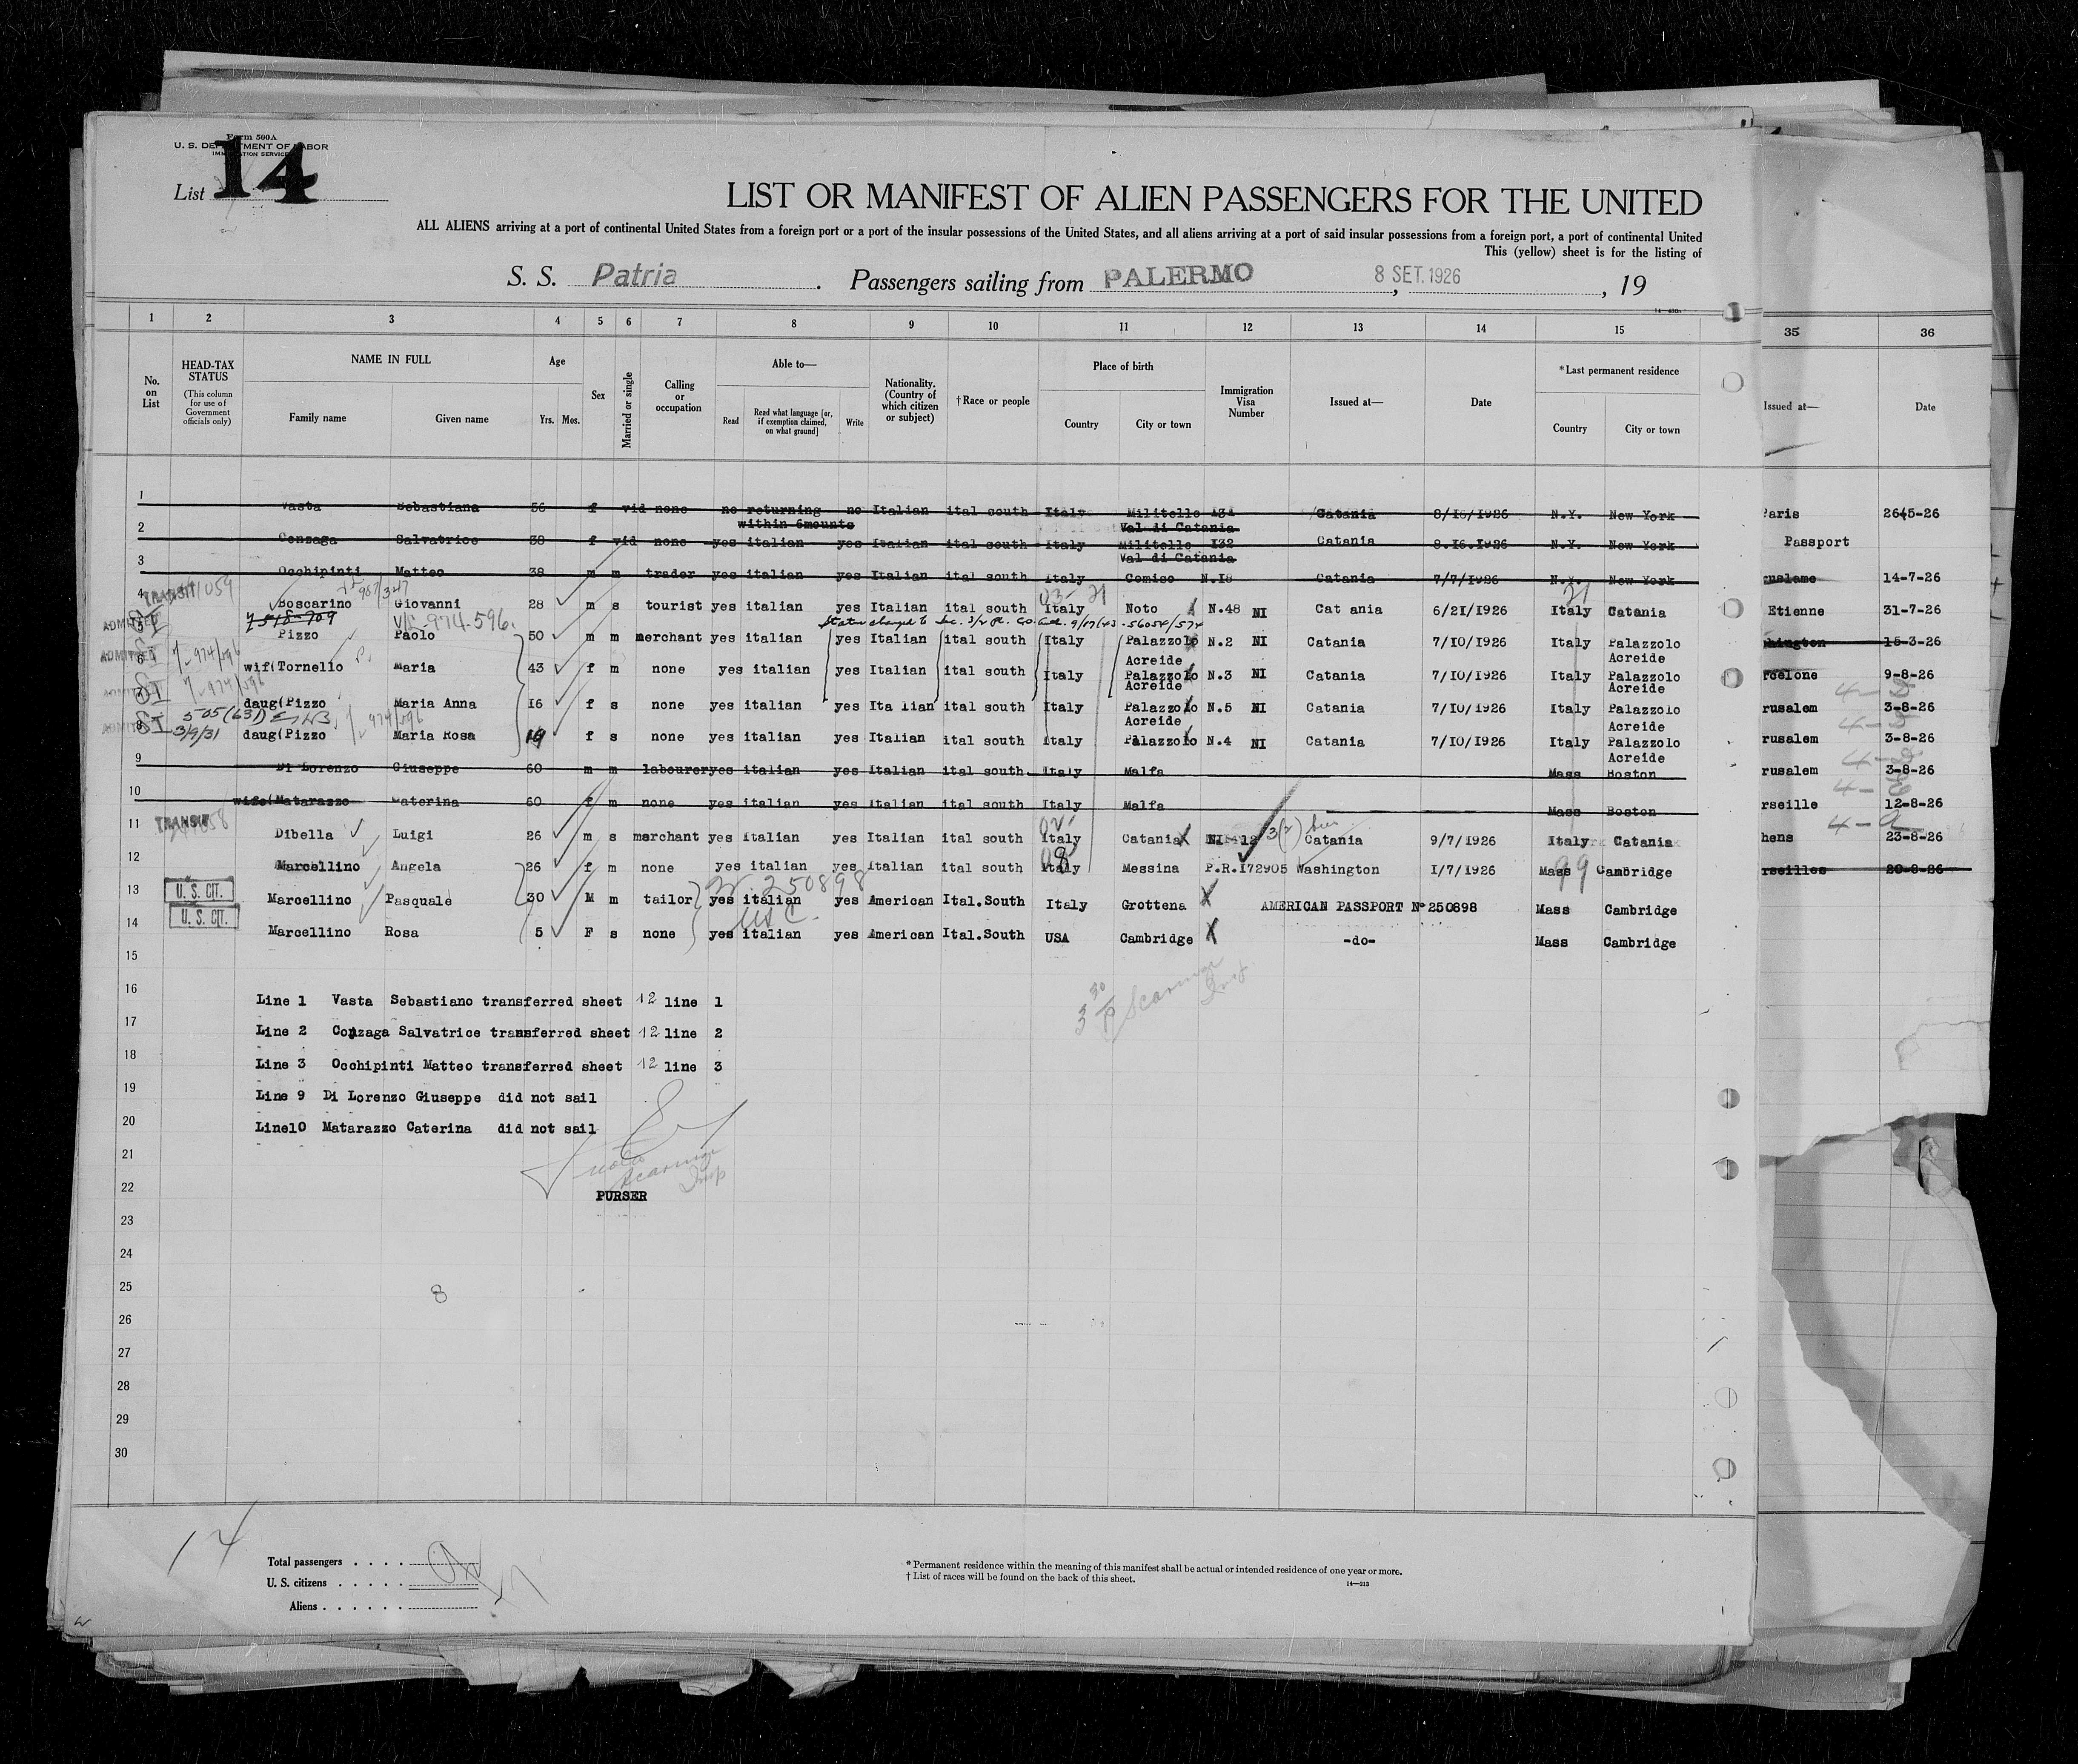 Form 500A
U. S. DEPARTMENT OF LABOR
IMMIGRATION SERVICE
List 14
LIST OR MANIFEST OF ALIEN PASSENGERS FOR THE UNITED
ALL ALIENS arriving at a port of continental United States from a foreign port or a port of the insular possessions of the United States, and all aliens arriving at a port of said insular possessions from a foreign port, a port of continental United
This (yellow) sheet is for the listing of
S. S. Patria. Passengers sailing from PALERMO, 8 SET. 1926, 19
1 2 3 4 5 6 7 8 9 10 11 12 13 14 15 35 36
No. on List
HEAD-TAX STATUS
(This column for use of Government officials only)
NAME IN FULL
Family name Given name
Age
Yrs. Mos.
Sex
Married or single
Calling or occupation
Able to—
Read
Read what language [or, if exemption claimed, on what ground]
Write
Nationality. (Country of which citizen or subject)
†Race or people
Place of birth
Country City or town
Immigration Visa Number
Issued at—
Date
*Last permanent residence
Country City or town
Issued at—
Date
1 Vasta Sebastiana 56 f vid none no returning no Italian ital south Italy Militello 131 Catania 8/16/1926 N.Y. New York
within 6mounts Val di Catania
2 Gonzaga Salvatrice 38 f vid none yes italian yes Italian ital south Italy Militello 132 Catania 8.16.1926 N.Y. New York
Val di Catania
3 Occhipinti Matteo 38 m m trader yes italian yes Italian ital south Italy Comiso N.18 Catania 7/7/1926 N.Y. New York
TRANSIT
4 Boscarino Giovanni 28 m s tourist yes italian yes Italian ital south Italy Noto N.48 NI Cat ania 6/21/1926 Italy Catania
7518-709 V/L-974-596.
ADMITTED SI Pizzo Paolo 50 m m merchant yes italian yes Italian ital south Italy Palazzolo N.2 NI Catania 7/10/1926 Italy Palazzolo
Acreide Acreide
ADMITTED 6 wif(Tornello Maria 43 f m none yes italian yes Italian ital south Italy Palazzolo N.3 NI Catania 7/10/1926 Italy Palazzolo
Acreide Acreide
SI daug(Pizzo Maria Anna 16 f s none yes italian yes Ita lian ital south Italy Palazzolo N.5 NI Catania 7/10/1926 Italy Palazzolo
Acreide Acreide
505 (631)
SI 3/9/31 daug(Pizzo Maria Rosa f s none yes italian yes Italian ital south Italy Palazzolo N.4 NI Catania 7/10/1926 Italy Palazzolo
Acreide
9 Di Lorenzo Giuseppe 60 m m labourer yes italian yes Italian ital south Italy Malfa Mass Boston
10 wife(Matarazzo Caterina 60 f m none yes italian yes Italian ital south Italy Malfa Mass Boston
TRANSIT
11 Dibella Luigi 26 m s merchant yes italian yes Italian ital south Italy Catania NI 12 Catania 9/7/1926 Italy Catania
12 Marcellino Angela 26 f m none yes italian yes Italian ital south Italy Messina P.R.172905 Washington 1/7/1926 Mass Cambridge
250898
13 U. S. CIT. Marcellino Pasquale 30 M m tailor yes italian yes American Ital.South Italy Grottena AMERICAN PASSPORT No 250898 Mass Cambridge
U. S. CIT.
14 Marcellino Rosa 5 F s none yes italian yes American Ital.South USA Cambridge -do- Mass Cambridge
15
16 Line 1 Vasta Sebastiano transferred sheet 12 line 1
17 Line 2 Conzaga Salvatrice transferred sheet 12 line 2
18 Line 3 Occhipinti Matteo transferred sheet 12 line 3
19 Line 9 Di Lorenzo Giuseppe did not sail
20 Line10 Matarazzo Caterina did not sail
21
22 PURSER
23
24
25 8
26
27
28
29
30
14
Total passengers . . . .
U. S. citizens . . . . .
Aliens . . . . . .
* Permanent residence within the meaning of this manifest shall be actual or intended residence of one year or more.
† List of races will be found on the back of this sheet.
14—213
Paris
Passport
14-7-26
Etienne 31-7-26
hington 15-3-26
rcelone 9-8-26
rusalem 3-8-26
rusalem 3-8-26
rusalem 3-8-26
rseille 12-8-26
hens 23-8-26
rseilles 20-8-26